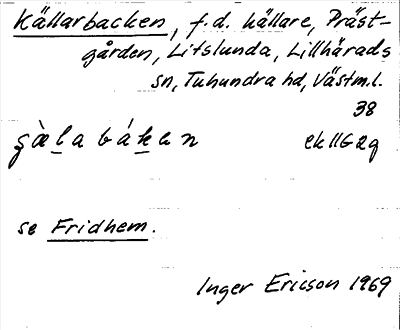 Källarbacken, f.d. källare, Präst-
gården, Litslunda, Lillhärads
sn, Tuhundra hd, Västm.l.
38
ek 11G2g
se Fridhem.
Inger Ericson 1969